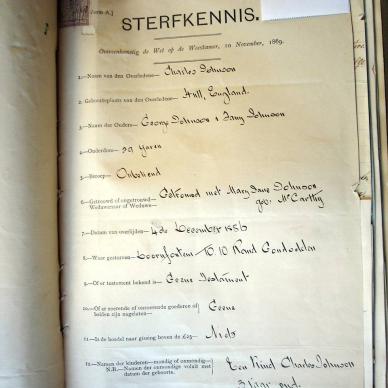 [Form A.]
STERFKENNIS.
Overeenkomstig de Wet op de Weeskamer, 10 November, 1869.
1.—Naam van den Overledene— Charles Johnson
2. Geboorteplaats van den Overledene— Hull, England.
3.—Namen der Ouders— George Johnson & Fanny Johnson
4.—Ouderdom— 29 Jaren
5.—Beroep— Onbekend
6.—Getrouwd of ongetrouwd— Getrouwd met Mary Jane Johnson
Weduwenaar of Weduwe— geb: McCarthy
7.—Datum van overlijden— 4de December 1886
8.—Waar gestorven— Doornfontein W. W. Rand Goudvelden
9.—Of er testament bekend is— Geene Testament
10.—Of er roerende of onroerende goederen of
beiden zijn nagelaten— Geene
11.—Is de boedel naar gissing boven de £25— Niets
12.—Namen der kinderen—mondig of onmondig—
N.B.—Namen der onmondige voluit met
datum der geboorte.
Een Kind Charles Johnson
3 jaar oud.